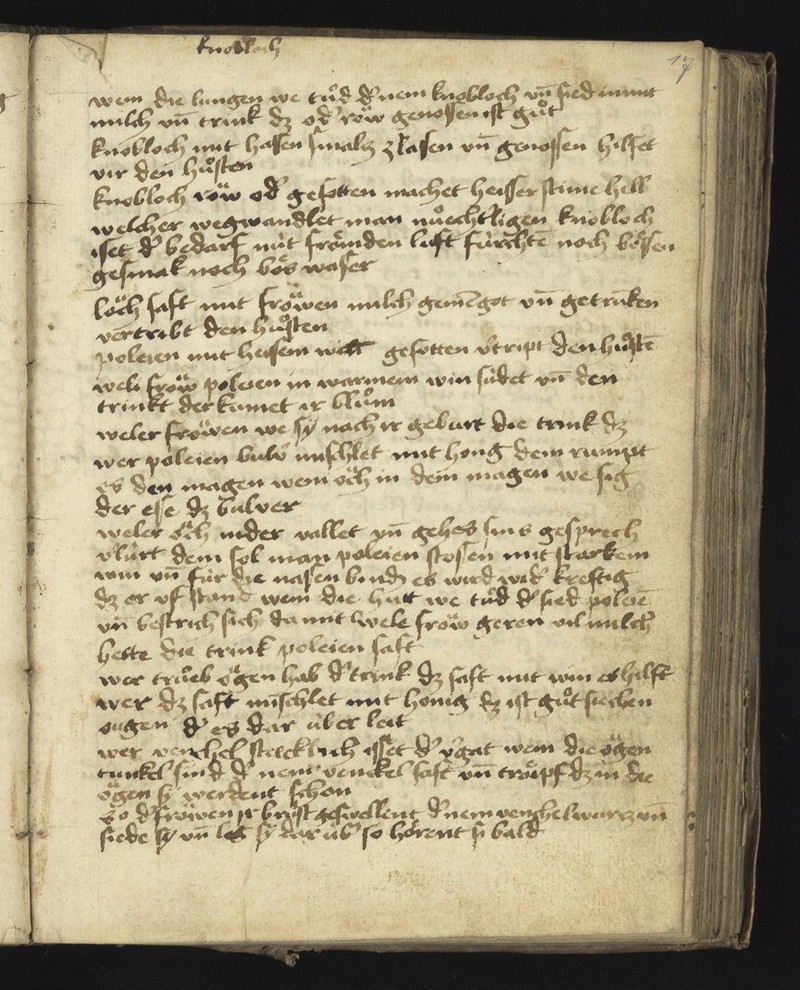 knobloch
17
wem die lungen we tůd d' nem knobloch vn̄ sied in mit
milch vn̄ trink dz od' röw genossen ist gůt
knobloch mit hasen smalz zlasen vn̄ genossen hilfet
vir den hůsten
knobloch röw od' gesotten machet heisser stime hell
welcher wegwandlet man nůechtligen knobloch
isset d' bedarf nüt frömden luft fürchtē noch bösen
gesmak noch bös waser
löch saft mit fröwen milch gemēgot vn̄ getrūken
vertribt den hůsten
poleien mit heisem gesotten v'tript den hůstē
weli fröw poleien in warmem win südet vn̄ den
trinkt der kumet ir blům
weler fröwen we sy nach ir geburt die trink dz
wer poleien bulv' mischlet mit hong dem rumpt
es den magen wem öch in dem magen we sig
der ese dz bulver
weler öch nider vallet vn̄ gehes sins gesprech
v'lürt dem sol man poleien stosen mit starkem
win vn̄ für die nasen bindē es wird wid' kreftig
dz er vf stand wem die hut we tůd d' sied poleiē
vn̄ bestrich sich da mit wele fröw geren vil milch
hette die trink poleien saft
wer trůeb ögen hab d' trink dz saft mit win es hilft
wer dz saft mischlet mit honig dz ist gůt siechen
ougen d' es dar über leit
wer venchel stecklich isset d' v'gat wem die ögen
tunkel sind d' nem venckel saft vn̄ tröipf dz in die
ögen sy werdent schon
so d' fröwen ir brüst geswellent d' nem venchel wurz vn̄
siede sy vn̄ leg sy dar üb' so hörent si bald